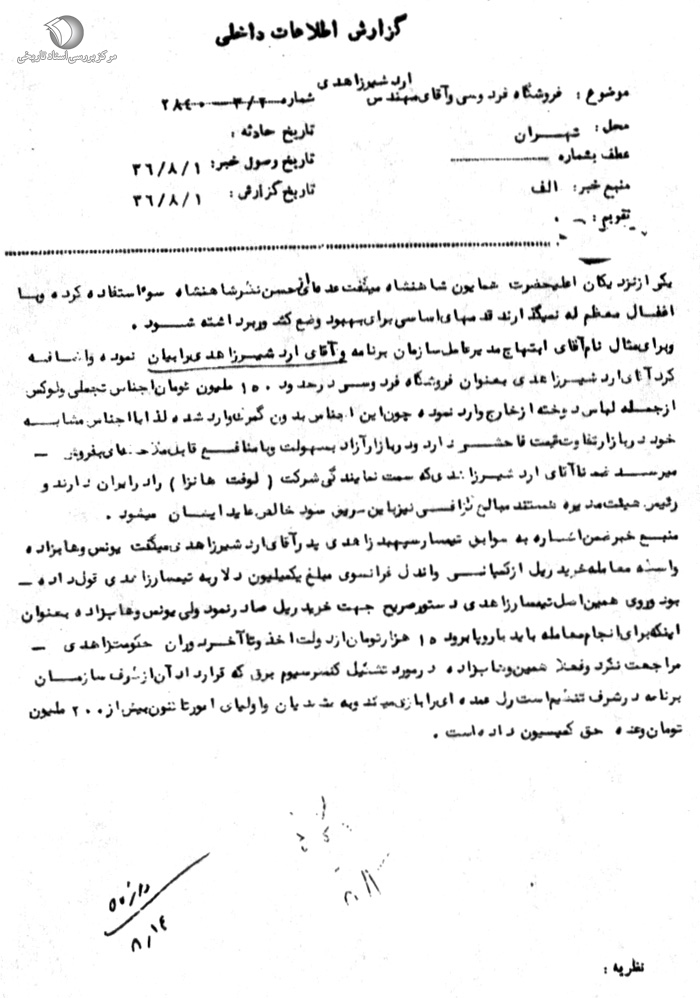 مرکز بررسی اسناد تاریخی
گزارش اطلاعات داخلی
موضوع : فروشگاه فردوسی وآقای مهندس اردشیرزاهدی
شماره ۲۸۴۰۰-۳/۲
محل : تهران
تاریخ حادثه :
عطف بشماره
تاریخ وصول خبر: ۳۶/۸/۱
منبع خبر: الف
تاریخ گزارش : ۳۶/۸/۱
تقویم :
یکی از نزدیکان اعلیحضرت همایون شاهنشاه میگفت عده ای از حسن نظر شاهنشاه سوء استفاده کرده وبا
اغفال معظم له نمیگذارند قدمهای اساسی برای بهبود وضع کشور برداشته شود .
وبرای مثال نام آقای ابتهاج مدیرعامل سازمان برنامه وآقای اردشیرزاهدی رابیان نموده واضافه
کرد آقای اردشیرزاهدی بعنوان فروشگاه فردوسی درحدود ۱۵۰ ملیون تومان اجناس تجملی ولوکس
ازجمله لباس دوخته ازخارج وارد نموده چون این اجناس بدون گمرک وارد شده لذا بااجناس مشابه
خود دربازار تفاوت قیمت فاحشی دارد ودربازارآزاد بسهولت وبا منافع قابل ملاحظه ای بفروش -
میرسد ضمنا آقای اردشیرزاهدی که سمت نمایندگی شرکت ( لوفت هانزا ) رادرایران دارند و
رئیس هیئت مدیره هستند مبالغ گزافی نیزباین طریق سود خالص عاید ایشان میشود .
منبع خبرضمن اشاره به سوابق تیمسارسپهبد زاهدی پدرآقای اردشیرزاهدی میگفت یونس وهابزاده
واسطه معامله خرید ریل ازکمپانی واندل فرانسوی مبلغ یکملیون دلاربه تیمسارزاهدی قول داده -
بود وروی همین اصل تیمسارزاهدی دستورصریح جهت خرید ریل صادرنمود ولی یونس وهابزاده بعنوان
اینکه برای انجام معامله باید باروپا برود ۱۵ هزارتومان ازدولت اخذ وتا آخردوران حکومت زاهدی -
مراجعت نکرد وفعلا همین وهابزاده درمورد تشکیل کنسرسیوم برق که قرارداد آن ازطرف سازمان
برنامه درشرف تنظیم است رل عمده ای رابازی میکند وبه متصدیان واولیای امورتاکنون بیش از ۲۰۰ ملیون
تومان وعده حق کمیسیون داده است .
۸/۱۴
نظریه :